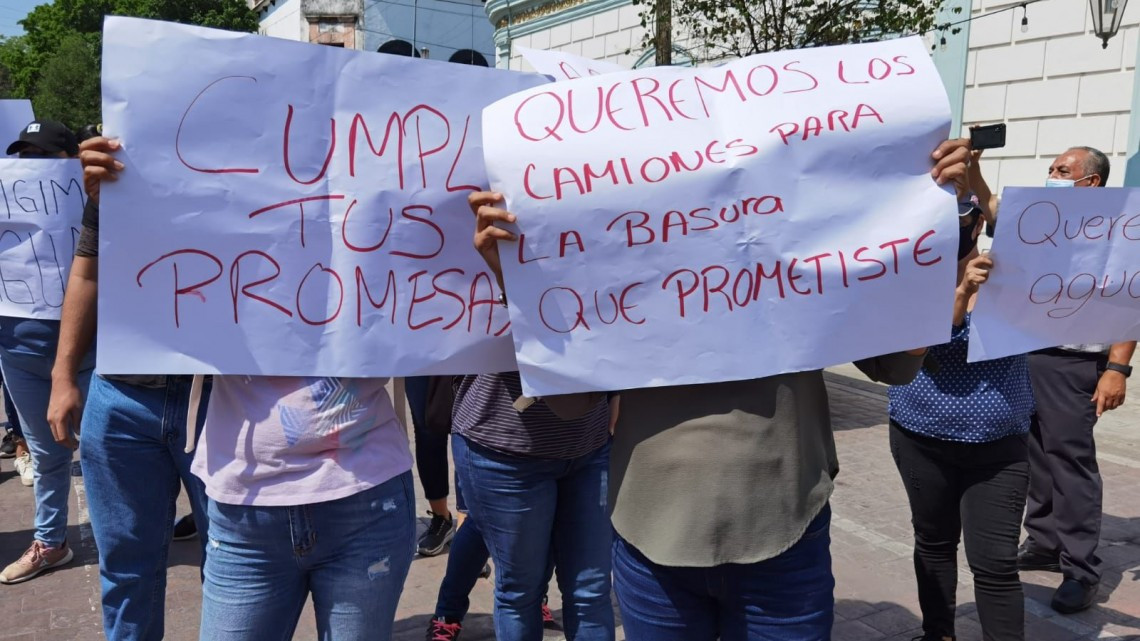 CUMPL
TUS
PROMESAS
QUEREMOS LOS
CAMIONES PARA
LA BASURA
QUE PROMETISTE
IGIM
Quere
agua